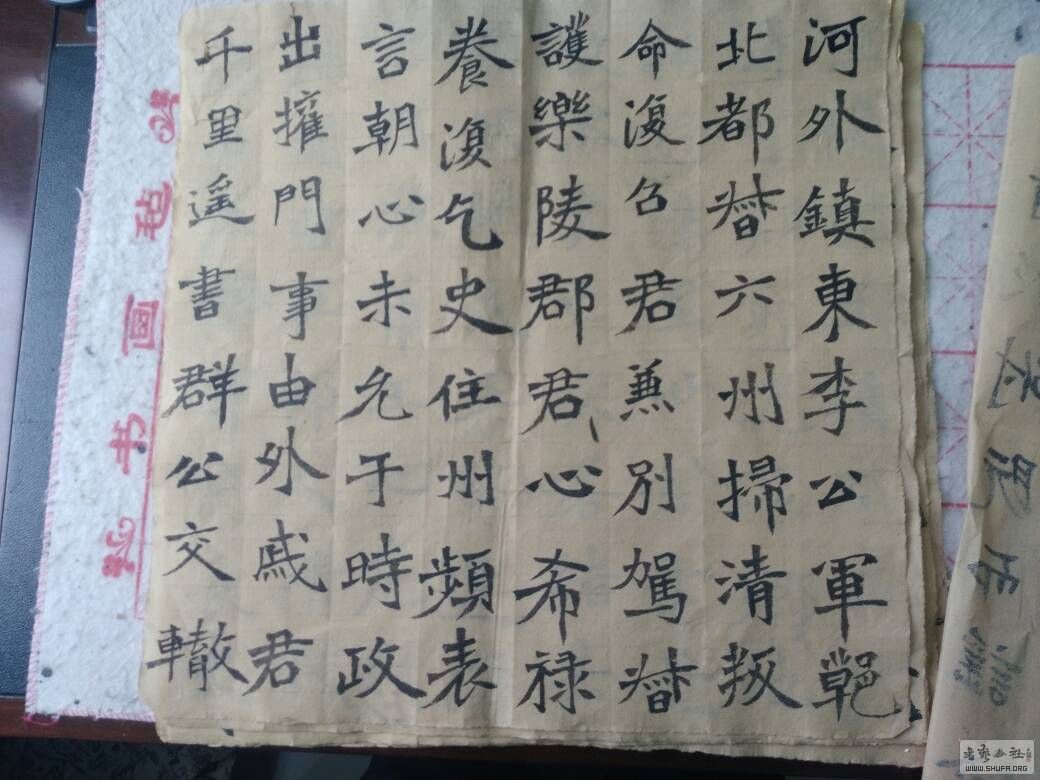 河外鎮東李公軍
北都督六州掃清叛
命復召君兼別駕督
護樂陵郡君心希禄
養復乞史住州頻表
言朝心未允于時政
出擁門事由外戚君
千里遥書群公交轍
书画毡
書藝公社
WWW.SHUFA.ORG